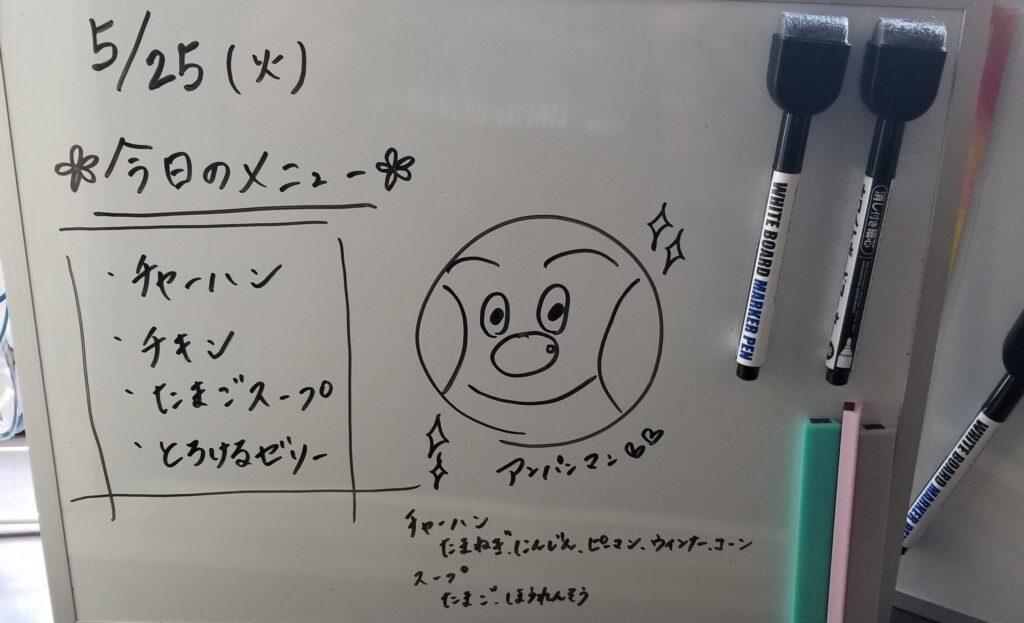 5/25(火)
今日のメニュー
・チャーハン
・チキン
・たまごスープ
・とろけるゼリー
アンパンマン
チャーハン
たまねぎ、にんじん、ピーマン、ウィンナー、コーン
スープ
たまご、ほうれんそう
WHITE BOARD MARKER PEN
消し付き 細心
WHITE BOARD MARKER PEN